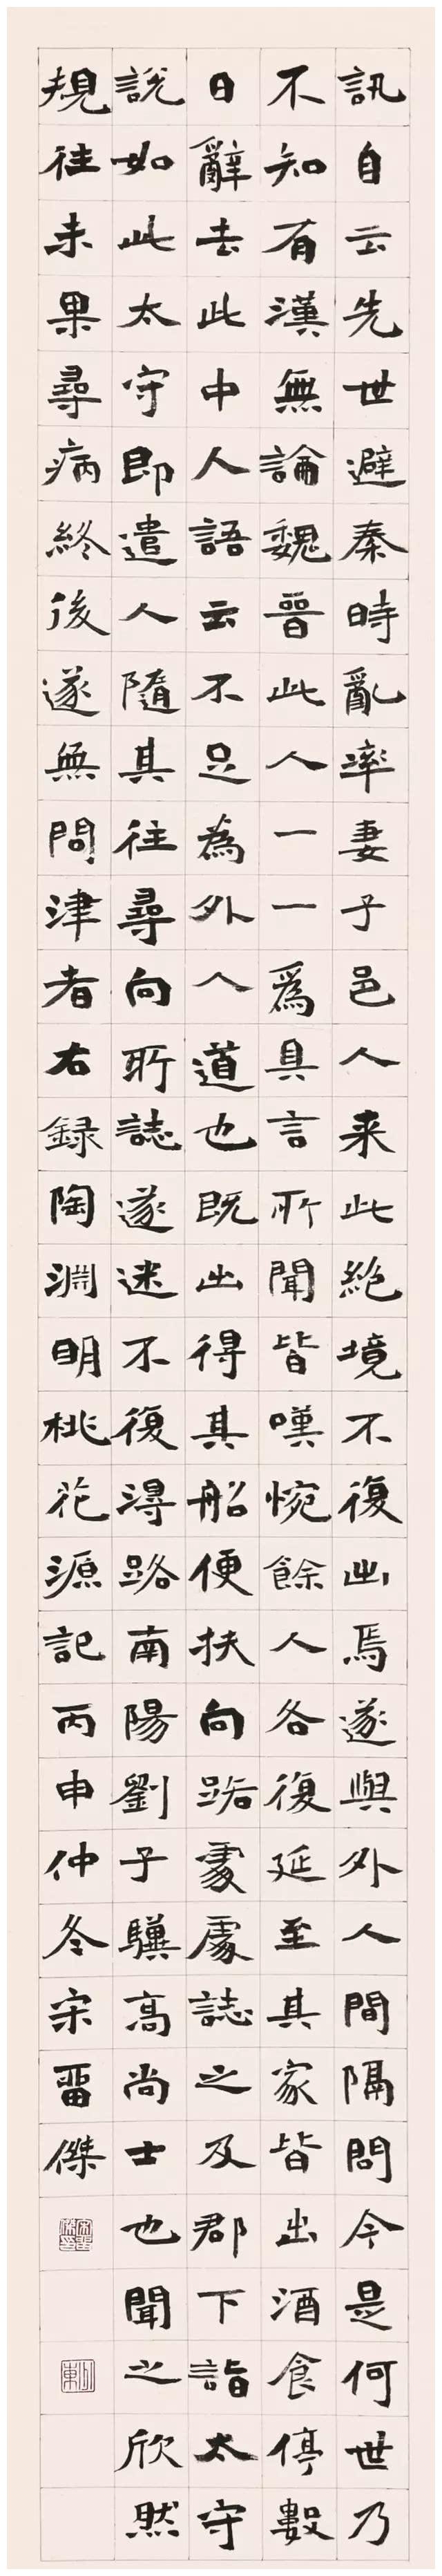 訊自云先世避秦時亂率妻子邑人来此絶境不復出焉遂與外人間隔問今是何世乃
不知有漢無論魏晉此人一一爲具言所聞皆嘆惋餘人各復延至其家皆出酒食停數
日辭去此中人語云不足為外人道也既出得其船便扶向路處處誌之及郡下詣太守
說如此太守即遣人隨其往尋向所誌遂迷不復淂路南陽劉子驥高尚士也聞之欣然
規往未果尋病終後遂無問津者右録陶淵明桃花源記丙申仲冬宋畱傑